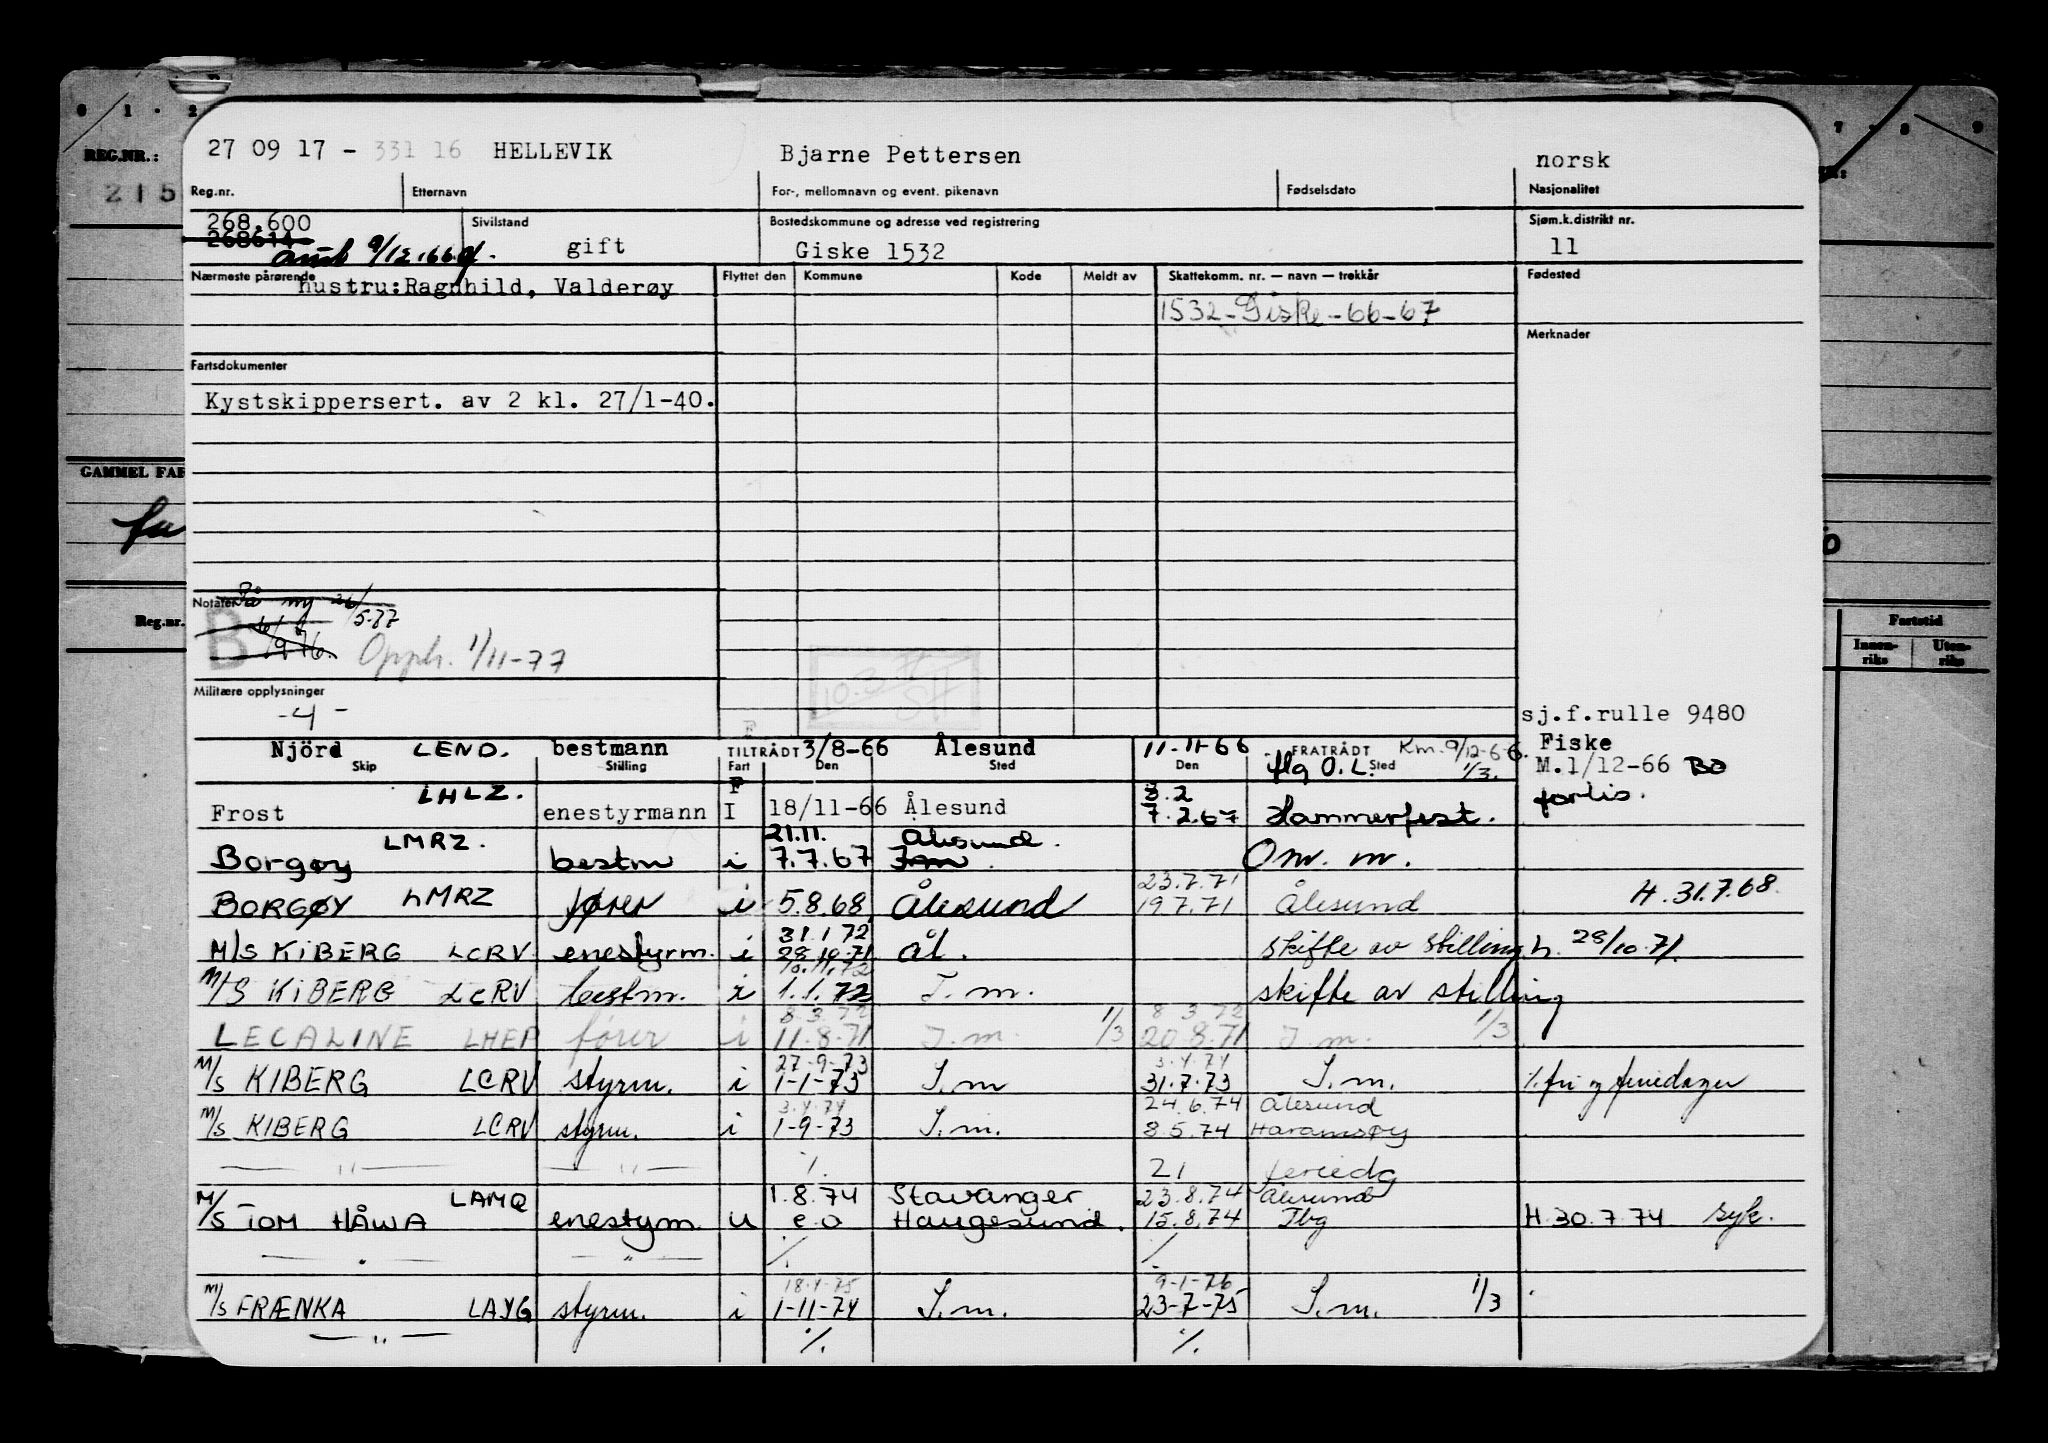 0 1 · 2
7 · 8 9
REG.NR.:
215
GAMMEL FAR
fu
Reg.nr.
Fartstid
Innen-riks Uten-riks
27 09 17 - 331 16 HELLEVIK Bjarne Pettersen norsk
Reg.nr. Etternavn For-, mellomnavn og event. pikenavn Fødselsdato Nasjonalitet
268.600 Sivilstand Bostedskommune og adresse ved registrering Sjøm.k.distrikt nr.
268614 gift Giske 1532 11
9/12.66
Nærmeste pårørende Flyttet den Kommune Kode Meldt av Skattekomm. nr. — navn — trekkår Fødested
hustru:Ragnhild, Valderøy
1532-Giske-66-67
Merknader
Fartsdokumenter
Kystskippersert. av 2 kl. 27/1-40.
Notater På ny 26/5-77
B
Opph. 1/11-77
10.3.77
Militære opplysninger
-4-
sj.f.rulle 9480
Njörd LEND. bestmann TILTRÅDT 3/8-66 Ålesund 11-11-66 FRATRÅDT Km. 9/12-66. Fiske
Skip Stilling Fart Den Sted Den flg O.L. Sted 1/3. M.1/12-66 BO
F
LHLZ. 8.2 forlis.
Frost enestyrmann I 18/11-66 Ålesund 7.2.67 Hammerfest.
LMRZ. 21.11. Ålesund.
Borgøy bestm i 7.7.67 I.m. Om. m.
23.7.71
BORGØY LMRZ fører i 5.8.68 Ålesund 19.7.71 Ålesund H. 31.7.68.
31.1.72
M/S KIBERG LCRV enestyrm. i 28.10.71 Ål. skifte av stilling h. 28/10.71.
10.11.72
M/S KIBERG LCRV bestm. i 1.1.72 I.m. skifte av stilling
8.3.72 8 3 72
LECALINE LHEP fører i 11.8.71 I.m. 1/3 20.8.71 I.m. 1/3
27-9-73 3.4.74
M/S KIBERG LCRV styrm. i 1-1-73 I.m 31.7.73 I.m. %fri og feriedager
3.4.74 24.6.74 Ålesund
M/S KIBERG LCRV styrm. i 1-9-73 I.m. 8.5.74 Haramsøy
— " — — " — %. 21 feriedg
LAMQ 1.8.74 Stavanger 23.8.74 Ålesund
M/S TOM HÅWA enestym. u e.o Haugesund. 15.8.74 Tbg H.30.7.74 syk.
— " — — " — %. %.
18.4-75 9-1-76
M/S FRÆNKA LAYG styrm. i 1-11-74 I.m. 23-7-75 I.m. 1/3
— " — %. %.